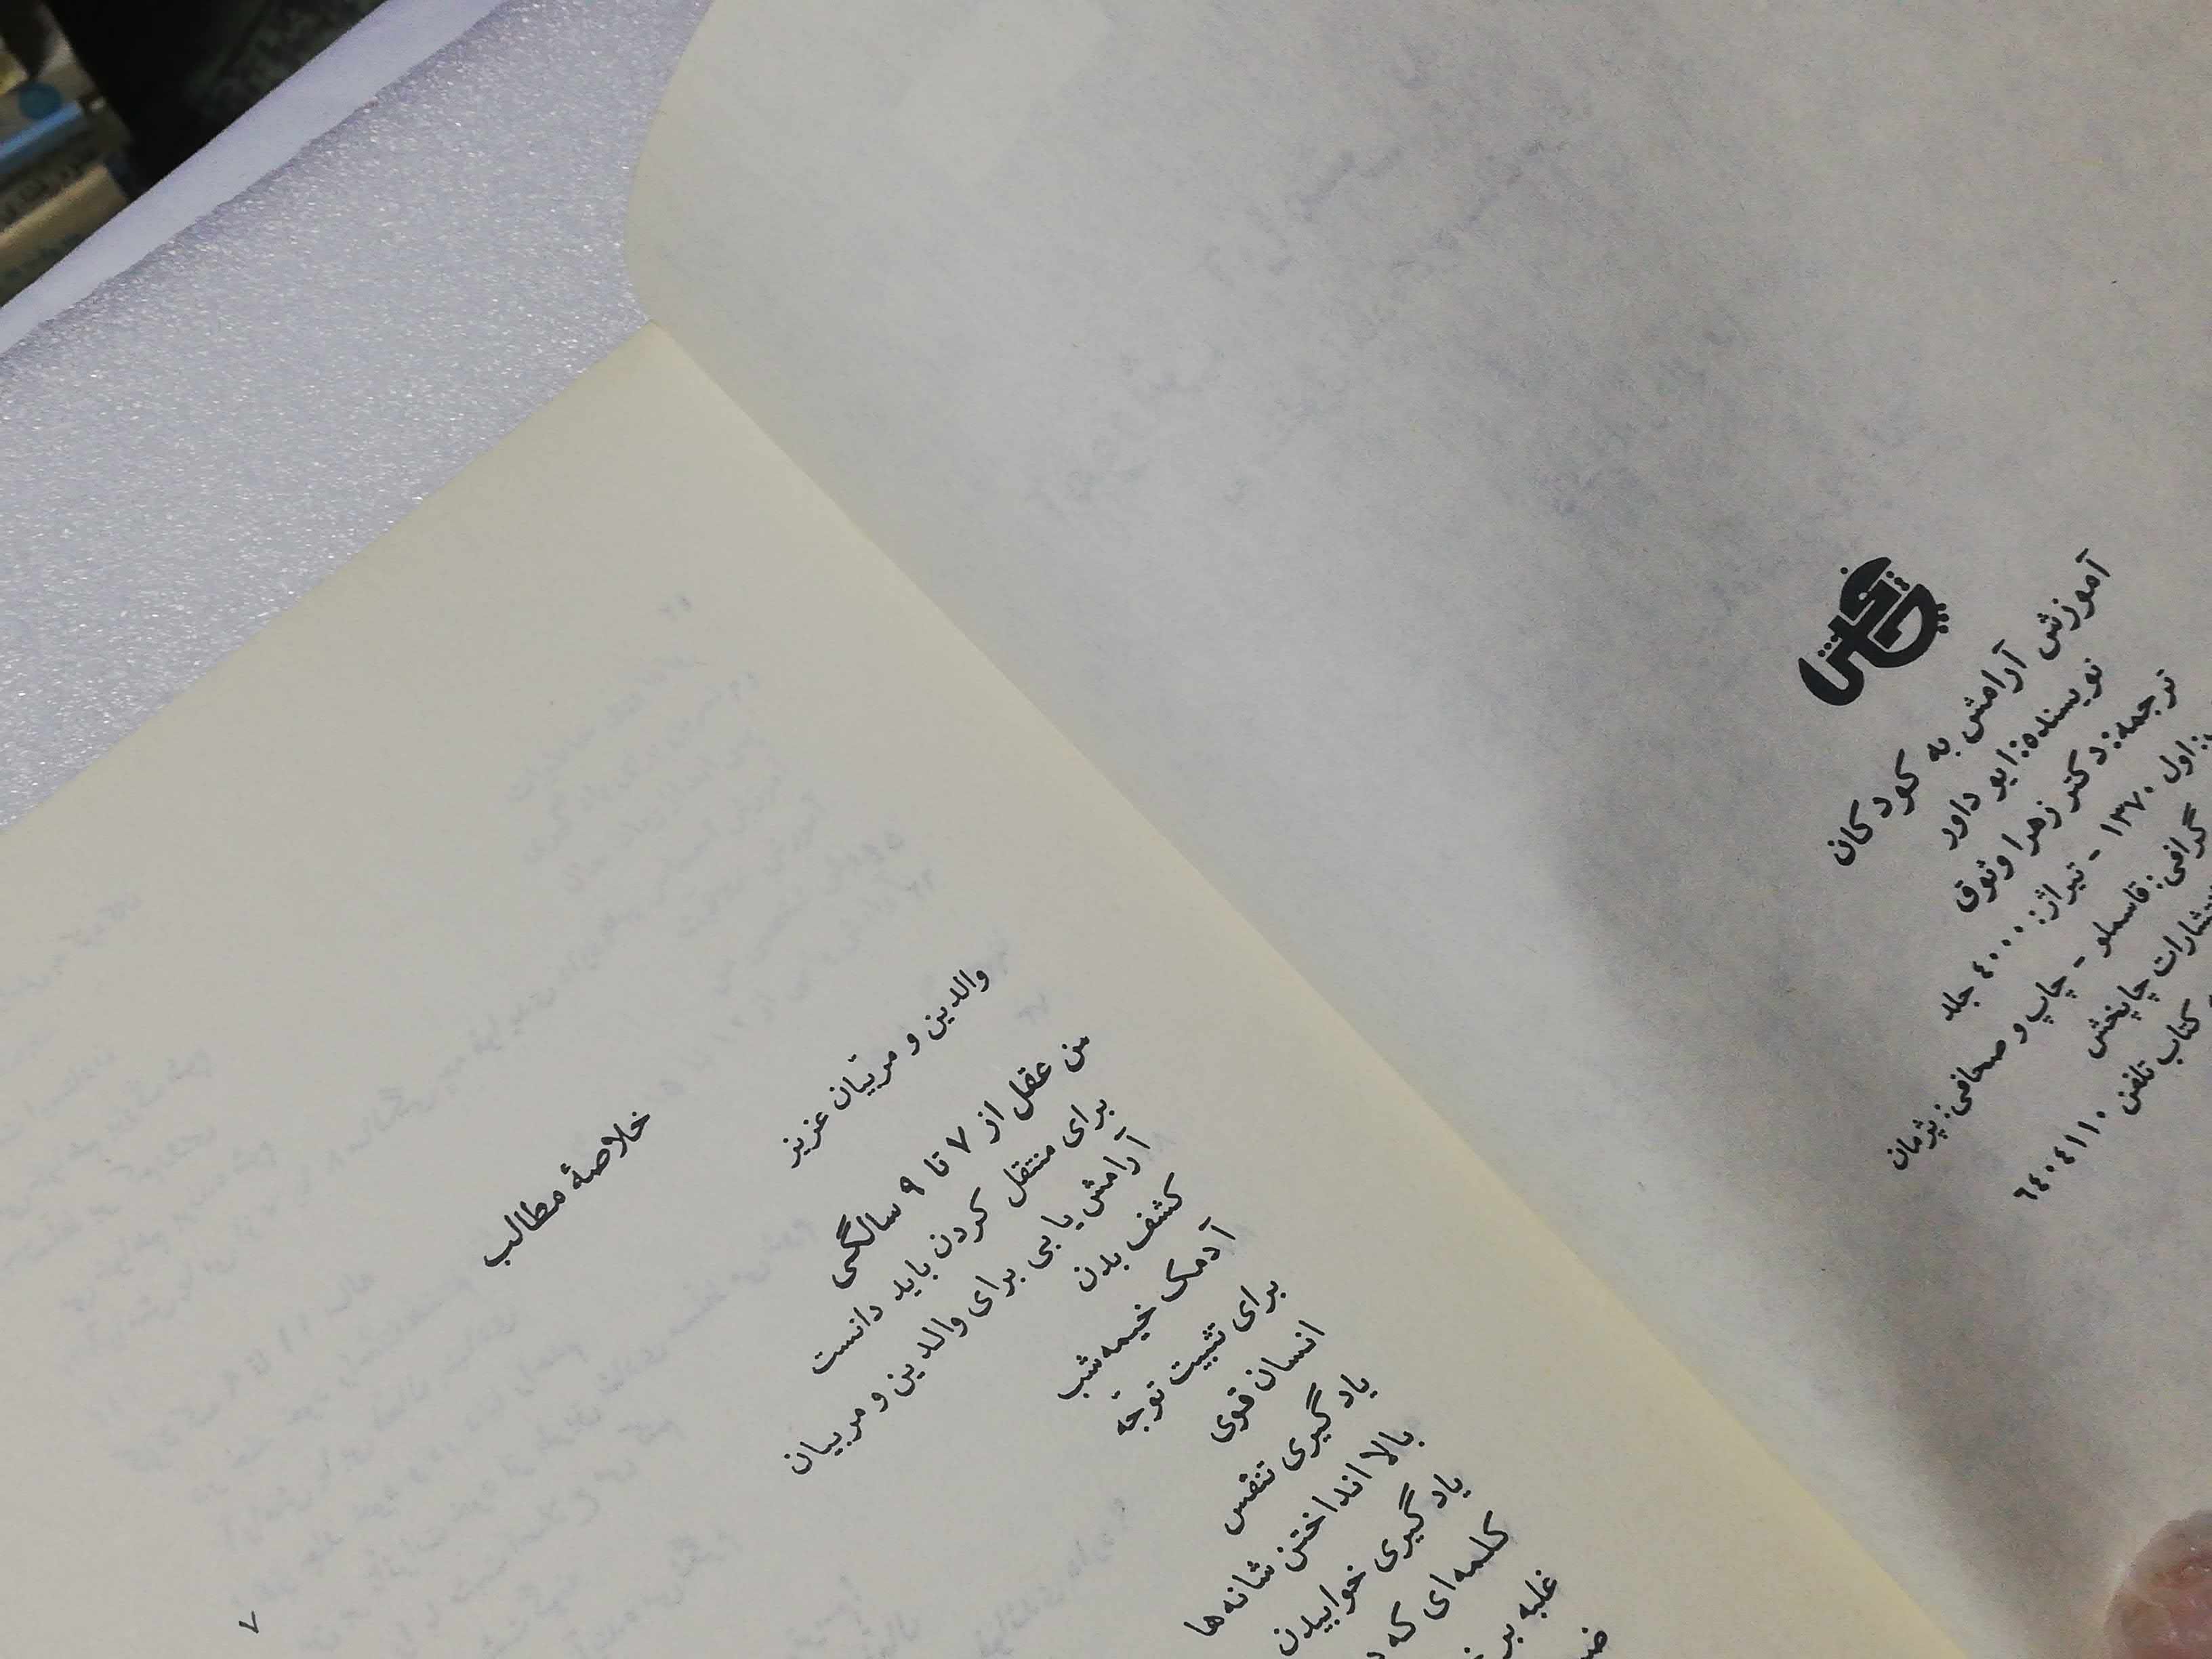 چاپخش
آموزش آرامش به کودکان
نویسنده: ایو داور
ترجمه: دکتر زهرا وثوق
اول ۱۳۷۰ - تیراژ: ۴۰۰۰ جلد
گرافی: قاسملو - چاپ و صحافی: پژمان
چاپخش
کتاب تلفن ۶۴۰۴۱۱۰
خلاصهٔ مطالب
والدین و مربّیان عزیز
عقل از ۷ تا ۹ سالگی
برای منتقل کردن باید دانست
آرامش یابی برای والدین و مربیان
کشف بدن
آدمک خیمه‌شب
برای تثبیت توجّه
انسان قوی
یادگیری تنفّس
بالا انداختن شانه‌ها
یادگیری خوابیدن
کلمه‌ای که
غلبه
۷